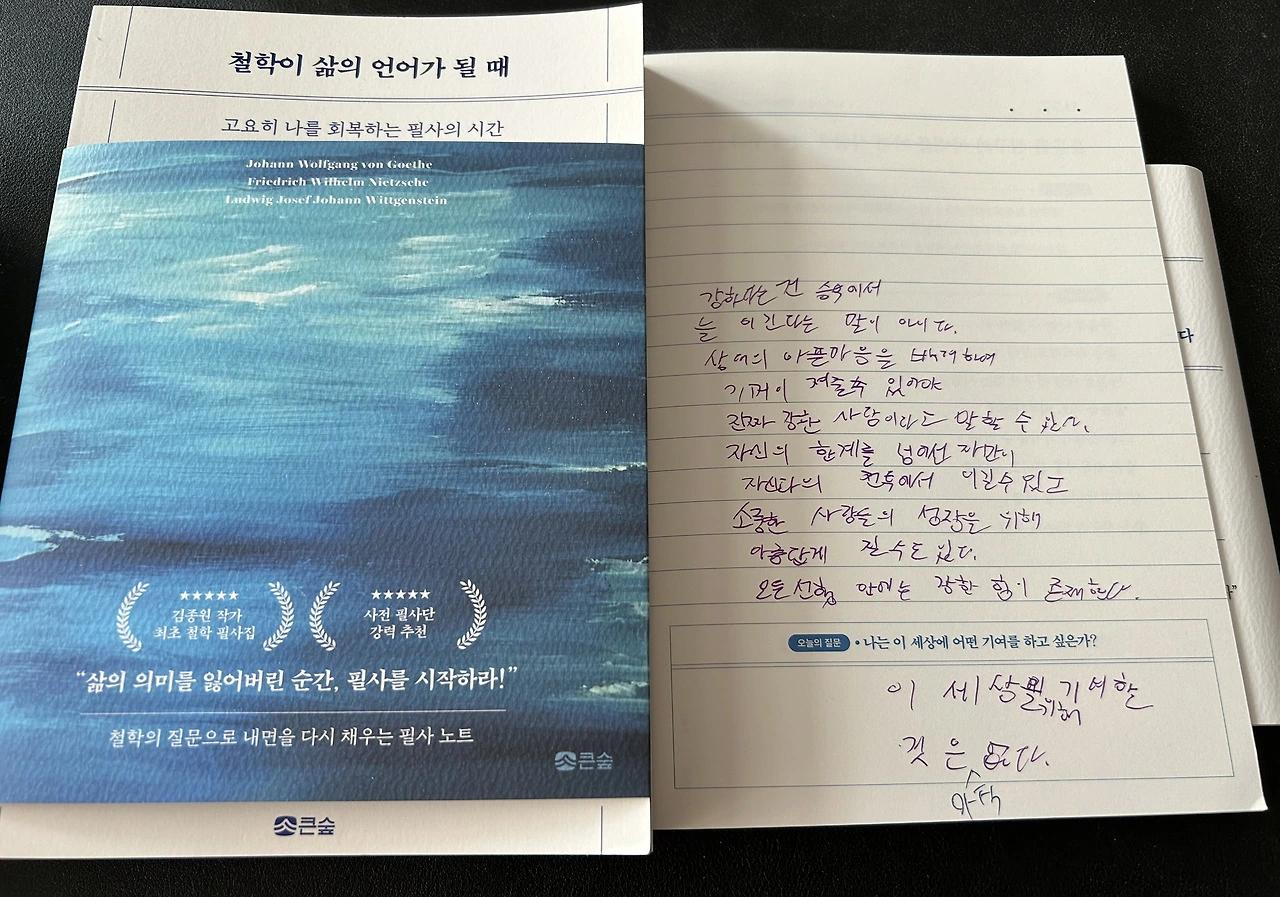 철학이 삶의 언어가 될 때
고요히 나를 회복하는 필사의 시간
Johann Wolfgang von Goethe
Friedrich Wilhelm Nietzsche
Ludwig Josef Johann Wittgenstein
★★★★★
김종원 작가
최초 철학 필사집
★★★★★
사전 필사단
강력 추천
“삶의 의미를 잃어버린 순간, 필사를 시작하라!”
철학의 질문으로 내면을 다시 채우는 필사 노트
큰숲
큰숲
강하다는 건 승부에서
늘 이긴다는 말이 아니다.
상대의 아픈마음을 배려하여
기꺼이 져줄줄 있어야
진짜 강한 사람이라고 말할 수 있다.
자신의 한계를 넘어선 자만이
자신과의 전투에서 이길수있고
소중한 사람들의 성장을 위해
아름답게 질 수도 있다.
모든 선행 안에는 강한 힘이 존재한다.
오늘의 질문 • 나는 이 세상에 어떤 기여를 하고 싶은가?
이 세상을 위해 기여할
것은 아직 없다.
다